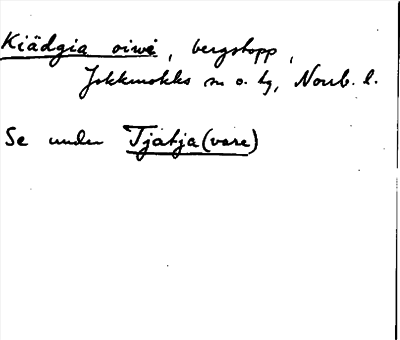 Kiädgia oiwi, bergstopp,
Jokkmokks sn o. tg, Norrb. l.
Se under Tjatja(vare)